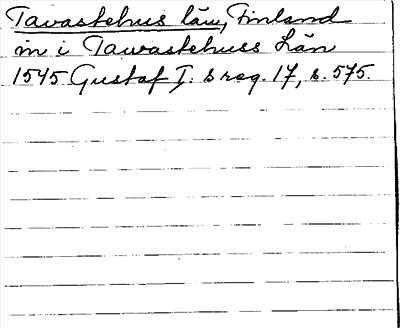 Tavastehus län, Finland
in i Tauwastehuss Län
1545 Gustaf I:s reg. 17, s. 575.